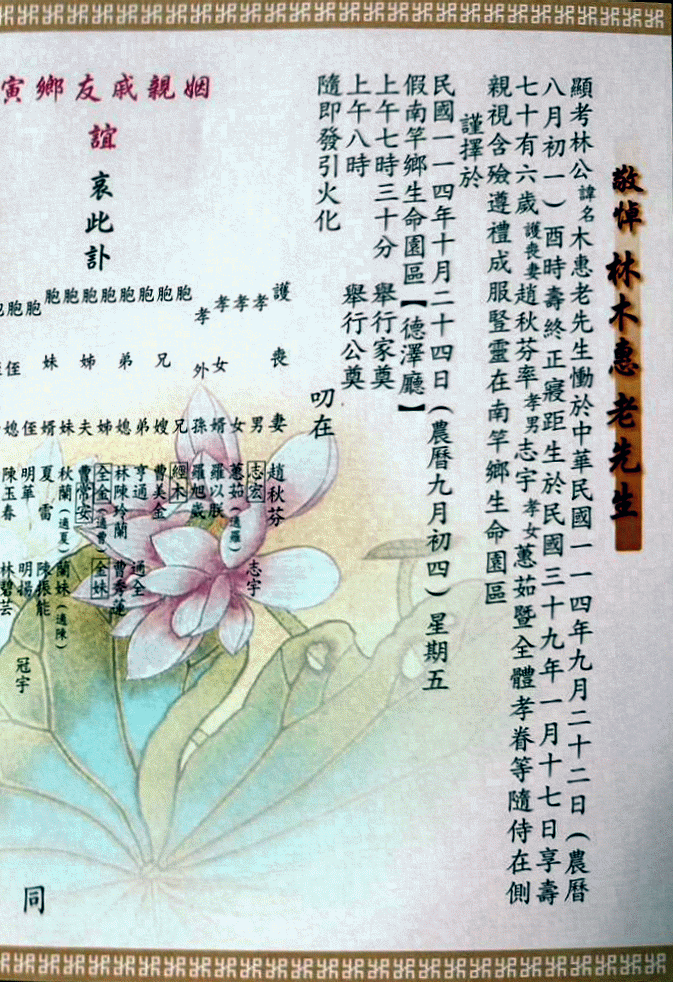 敬悼 林木惠 老先生
顯考林公諱名木惠老先生慟於中華民國一一四年九月二十二日（農曆
八月初一）酉時壽終正寢距生於民國三十九年一月十七日享壽
七十有六歲護喪妻趙秋芬率孝男志宇孝女蕙茹暨全體孝眷等隨侍在側
親視含殮遵禮成服豎靈在南竿鄉生命園區
謹擇於
民國一一四年十月二十四日（農曆九月初四）星期五
假南竿鄉生命園區【德澤廳】
上午七時三十分 舉行家奠
上午八時 舉行公奠
隨即發引火化
叨在
姻親戚友鄉寅
誼
哀此訃
護喪妻 趙秋芬
孝男 志宏 志宇
孝女 蕙茹（適羅）
孝女婿 羅以朕
孝外孫 羅旭崴
胞兄 經木
胞兄嫂 曹美金
胞弟 亨通 通全
胞弟媳 林陳玲蘭 曹秀蓮
胞姊 全金（適曹） 金妹
胞姊夫 曹常安
胞妹 秋蘭（適夏） 蘭妹（適陳）
胞妹婿 夏雷 陳振能
胞侄 明華 明揚 冠宇
侄媳 陳玉春 林碧芸
同